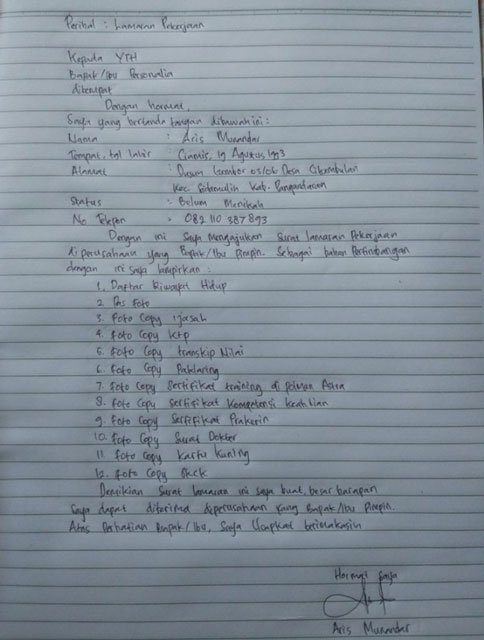 Perihal : Lamaran Pekerjaan
Kepada YTH
Bapak/Ibu Personalia
ditempat
Dengan hormat,
Saya yang bertanda tangan dibawah ini :
Nama : Aris Munandar
Tempat, tgl lahir : Ciamis, 19 Agustus 1993
Alamat : Dusun 05/06 Desa
Kec Sidamulih Kab. Pangandaran
Status : Belum Menikah
No Telepon : 082 110 387 893
Dengan ini Saya Mengajukan Surat lamaran Pekerjaan
di perusahaan yang Bapak/Ibu Pimpin. Sebagai bahan Pertimbangan
dengan ini saya lampirkan :
1. Daftar Riwayat Hidup
2. Pas Foto
3. Foto Copy ijasah
4. Foto Copy Ktp
5. Foto Copy transkip Nilai
6. Foto Copy Paklaring
7. Foto Copy Sertifikat training di Polman Astra
8. Foto Copy Sertifikat Kompetensi Keahlian
9. Foto Copy Sertifikat Prakerin
10. Foto Copy Surat Dokter
11. Foto Copy Kartu Kuning
12. Foto Copy Skck
Demikian Surat lamaran ini saya buat, besar harapan
Saya dapat diterima diperusahaan yang Bapak/Ibu Pimpin.
Atas Perhatian Bapak/Ibu, Saya Ucapkat terimakasih
Hormat Saya
Aris Munandar